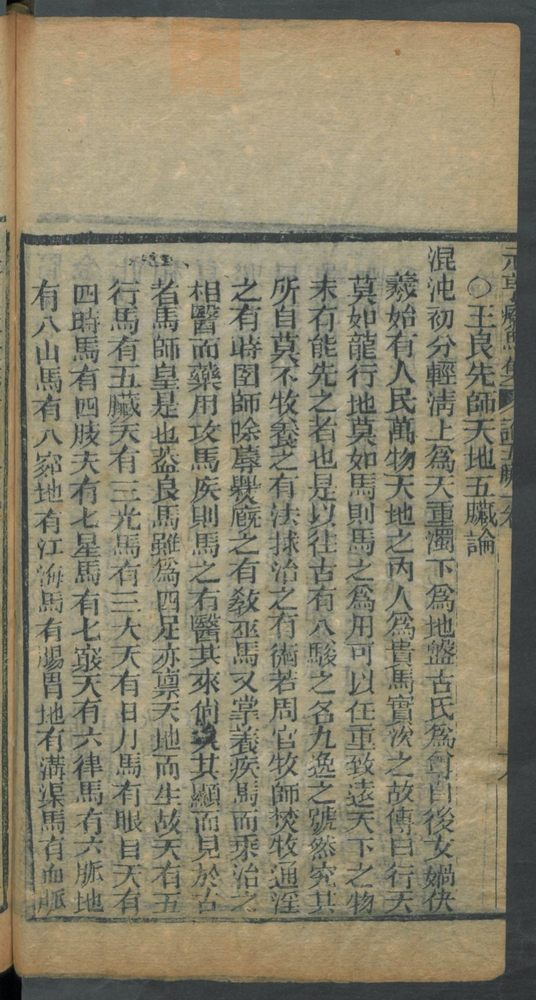 元亨療馬集
○王良先師天地五臟論
混沌初分輕淸上爲天重濁下爲地盤古氏爲尊自後女媧伏
羲始有人民萬物天地之內人爲貴馬實次之故傳曰行天
莫如龍行地莫如馬則馬之爲用可以任重致遠天下之物
未有能先之者也是以往古有八駿之名九逸之號然究其
所自莫不牧養之有法捄治之有術若周官牧師焚牧通淫
之有時圉師除蓐釁廐之有敎巫馬又掌養疾馬而乘治之
相醫而藥用攻馬疾則馬之有醫其來尙矣其顯而見於古
者馬師皇是也葢良馬雖爲四足亦禀天地而生故天有五
行馬有五臟天有三光馬有三大天有日月馬有眼目天有
四時馬有四肢天有七星馬有七竅天有六律馬有六脈地
有八山馬有八郊地有江海馬有腸胃地有溝渠馬有血脈